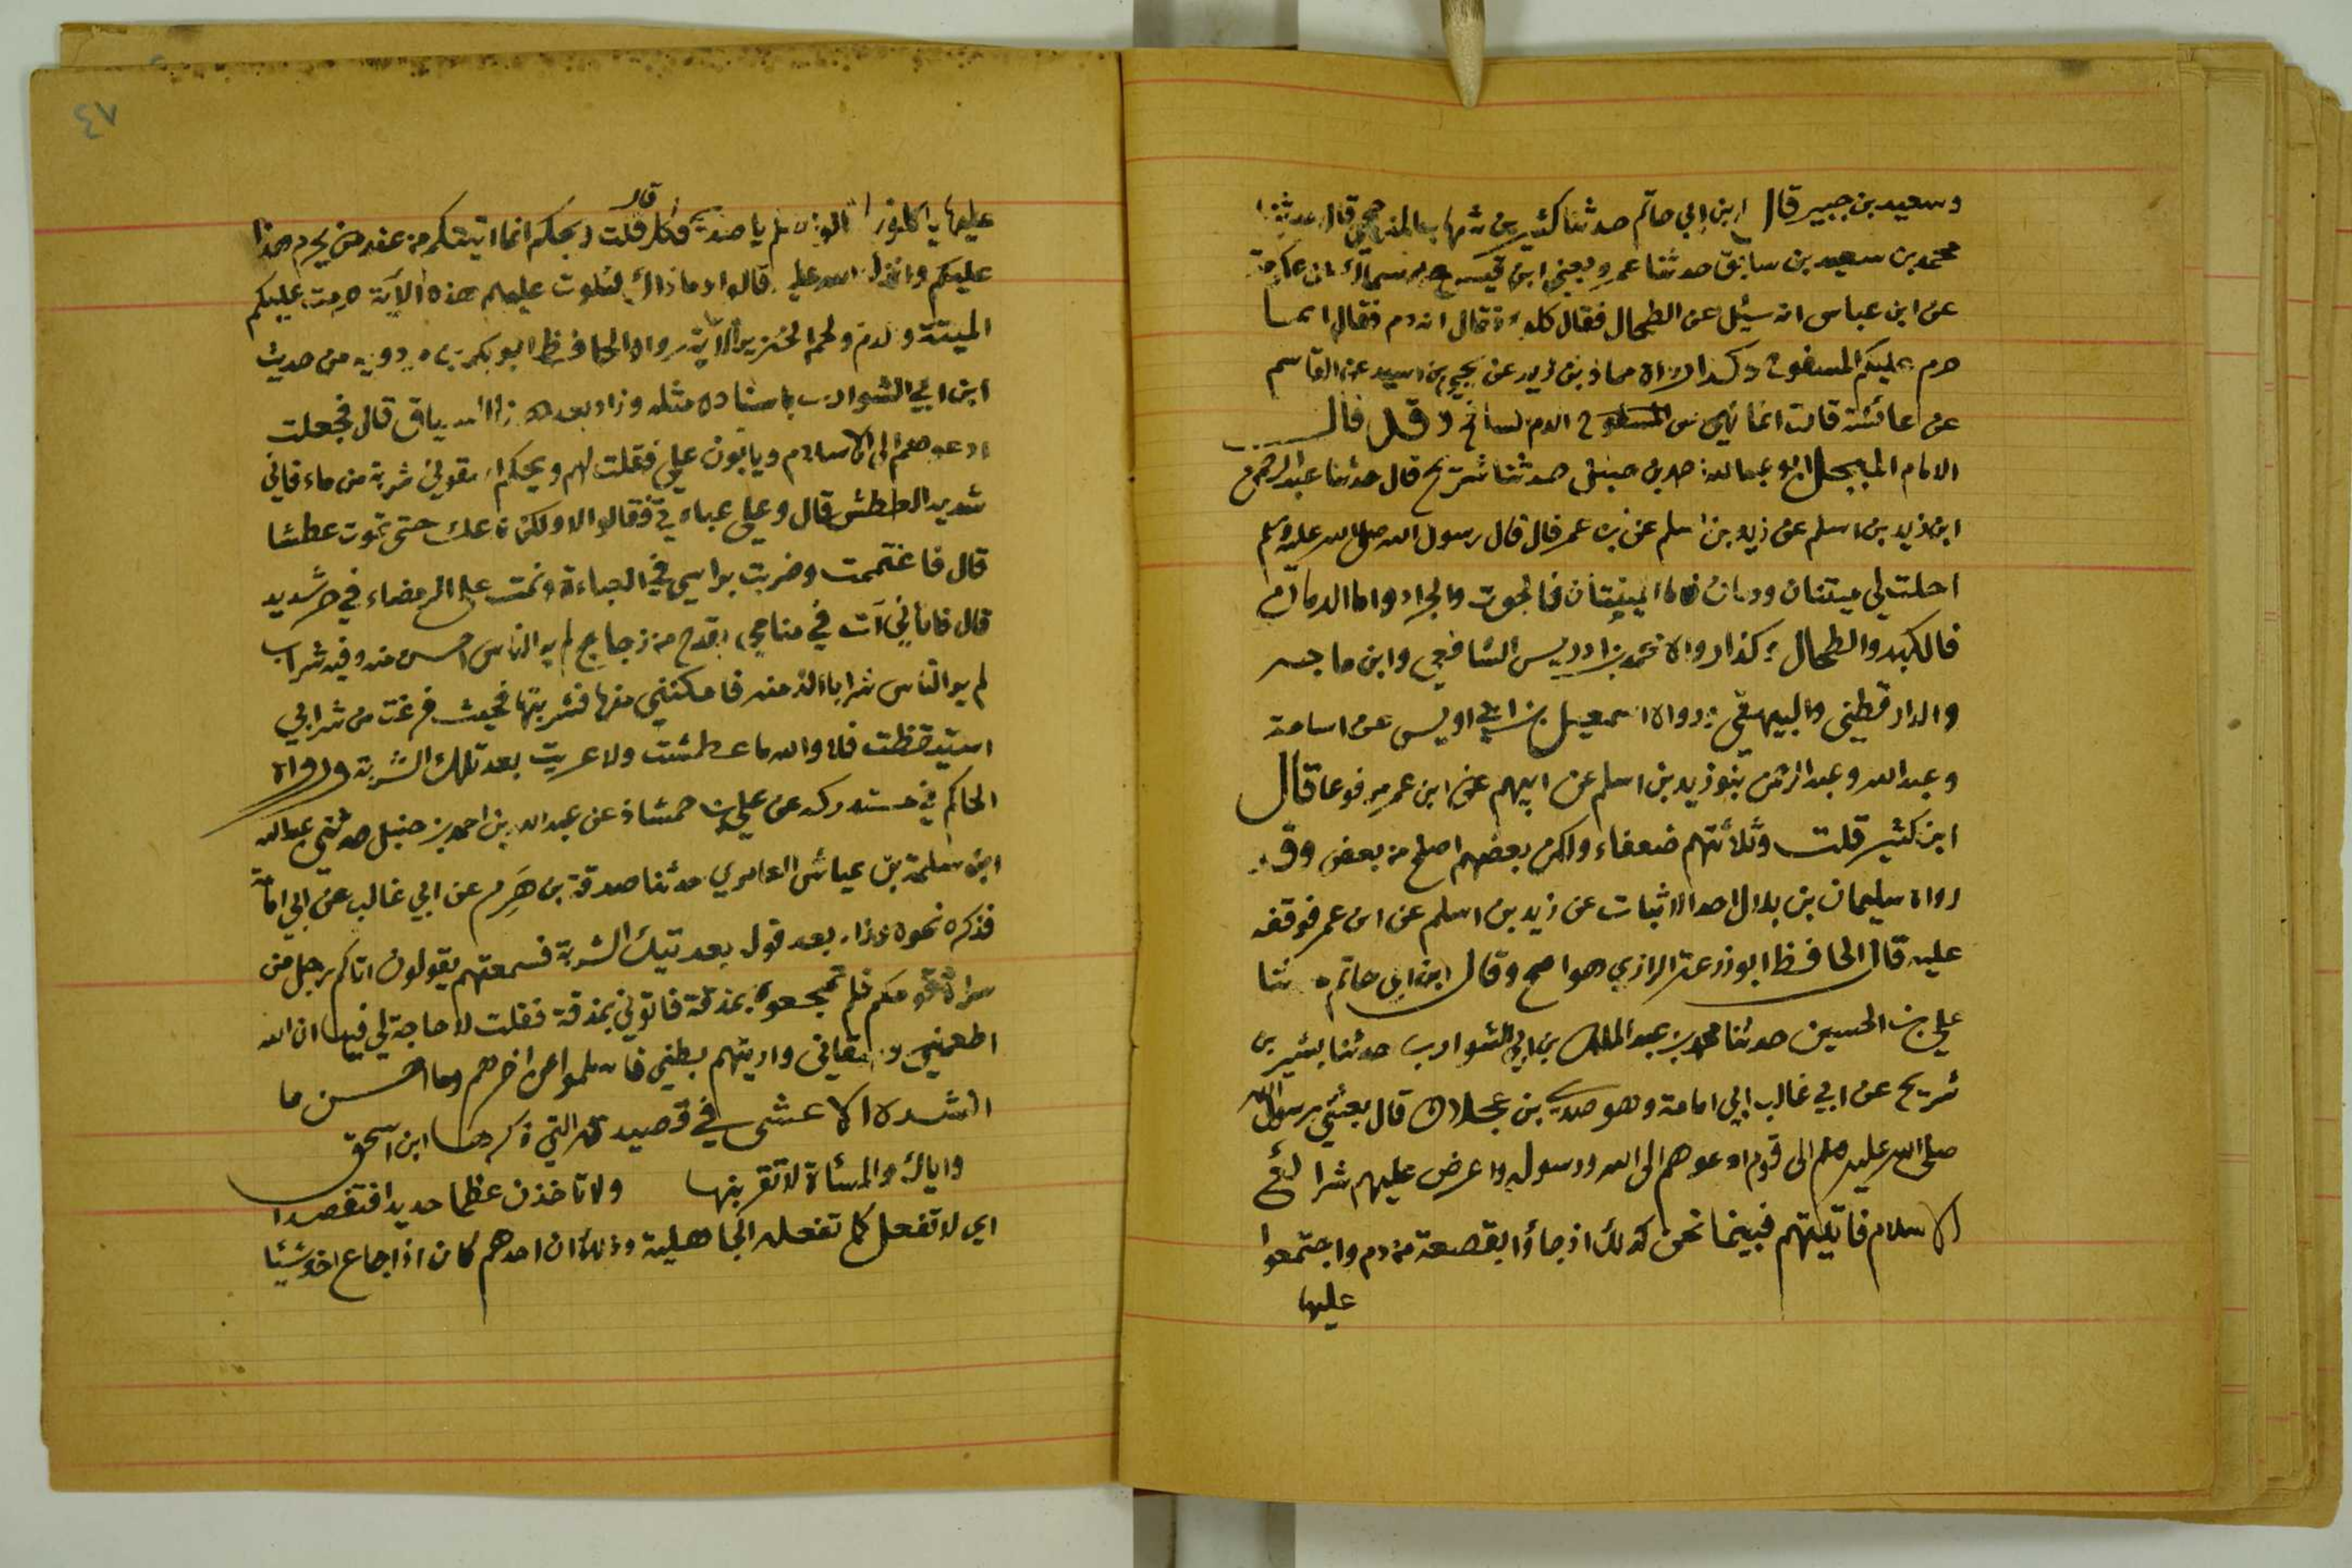 وسعيد بن جبير قال ابن ابي حاتم حدثنا كثير بن شهاب المذحجي قال حدثنا
محمد بن سعيد بن سابق حدثنا عمرو يعني ابن قيس عن سماك عن عكرمة
عن ابن عباس انه سئل عن الطحال فقال كلوه فقال انه دم فقال انما
حرم عليكم المسفوح وكذا رواه حماد بن زيد عن يحيى بن سعيد عن القاسم
عن عائشة قالت انما نهي عن الدم السافح وقد قال
الامام المبجل ابو عبد الله احمد بن حنبل حدثنا شريح قال حدثنا عبد الرحمن
ابن زيد بن اسلم عن زيد بن اسلم عن ابن عمر قال قال رسول الله صلى الله عليه وسلم
احلت لي ميتتان ودمان فاما الميتتان فالحوت والجراد واما الدمان
فالكبد والطحال وكذا رواه محمد بن ادريس الشافعي وابن ماجه
والدارقطني والبيهقي ورواه اسمعيل بن ابي اويس عن اسامة
وعبد الله وعبد الرحمن بنو زيد بن اسلم عن ابيهم عن ابن عمر مرفوعا قال
ابن كثير قلت وثلاثتهم ضعفاء ولكن بعضهم اصلح من بعض وقد
رواه سليمان بن بلال احد الاثبات عن زيد بن اسلم عن ابن عمر فوقفه
عليه قال الحافظ ابو زرعة الرازي وهو اصح وقال ابن ابي حاتم ثنا
علي بن الحسين حدثنا محمد بن عبد الملك بن ابي الشوارب حدثنا بشير بن
شريح عن ابي غالب ابي امامة وهو صدي بن عجلان قال بعثني رسول الله
صلى الله عليه وسلم الى قوم ادعوهم الى الله ورسوله واعرض عليهم شرائع
الاسلام فاتيتهم فبينما نحن كذلك اذ جاؤا بقصعة من دم واجتمعوا
عليها
٤٧
عليها يأكلونها قالوا هلم يا صدي فكل قال قلت ويحكم انما اتيتكم من عند من يحرم هذا
عليكم وانزل الله عليه قالوا وما ذاك فتلوت عليهم هذه الآية حرمت عليكم
الميتة والدم ولحم الخنزير الآية رواه الحافظ ابو بكر بن مردويه من حديث
ابن ابي الشوارب باسناده مثله وزاد بعد هذا السياق قال فجعلت
ادعوهم الى الاسلام ويابون علي فقلت لهم ويحكم اسقوني شربة من ماء فاني
شديد العطش قال وعلي عباءتي فقالوا لا ولكن ندعك حتى تموت عطشا
قال فاغتممت وضربت براسي في العباءة ونمت على الرمضاء في حر شديد
قال فاتاني آت في منامي بقدح من زجاج لم ير الناس احسن منه وفيه شراب
لم ير الناس شرابا الذ منه فامكنني منها فشربتها فحيث فرغت من شرابي
استيقظت فلا والله ما عطشت ولا عريت بعد تلك الشربة ورواه
الحاكم في مستدركه عن علي بن حمشاذ عن عبد الله بن احمد بن حنبل حدثني عبد الله
ابن سلمة بن عياش العامري حدثنا صدقة بن هَرِم عن ابي غالب عن ابي امامة
فذكره نحوه وزاد بعد قوله بعد تيك الشربة فسمعتهم يقولون اتاكم رجل من
سراة قومكم فلم تمجعوه بمذقة فاتوني بمذقة فقلت لا حاجة لي فيها ان الله
اطعمني وسقاني واريتهم بطني فاسلموا عن اخرهم وما احسن ما
انشده الاعشى في قصيدته التي ذكرها ابن اسحق
واياك والميتاة لا تقربنها ولا تاخذن عظما حديدا فتفصدا
اي لا تفعل كما تفعله الجاهلية وذلك ان احدهم كان اذا جاع اخذ شيئا